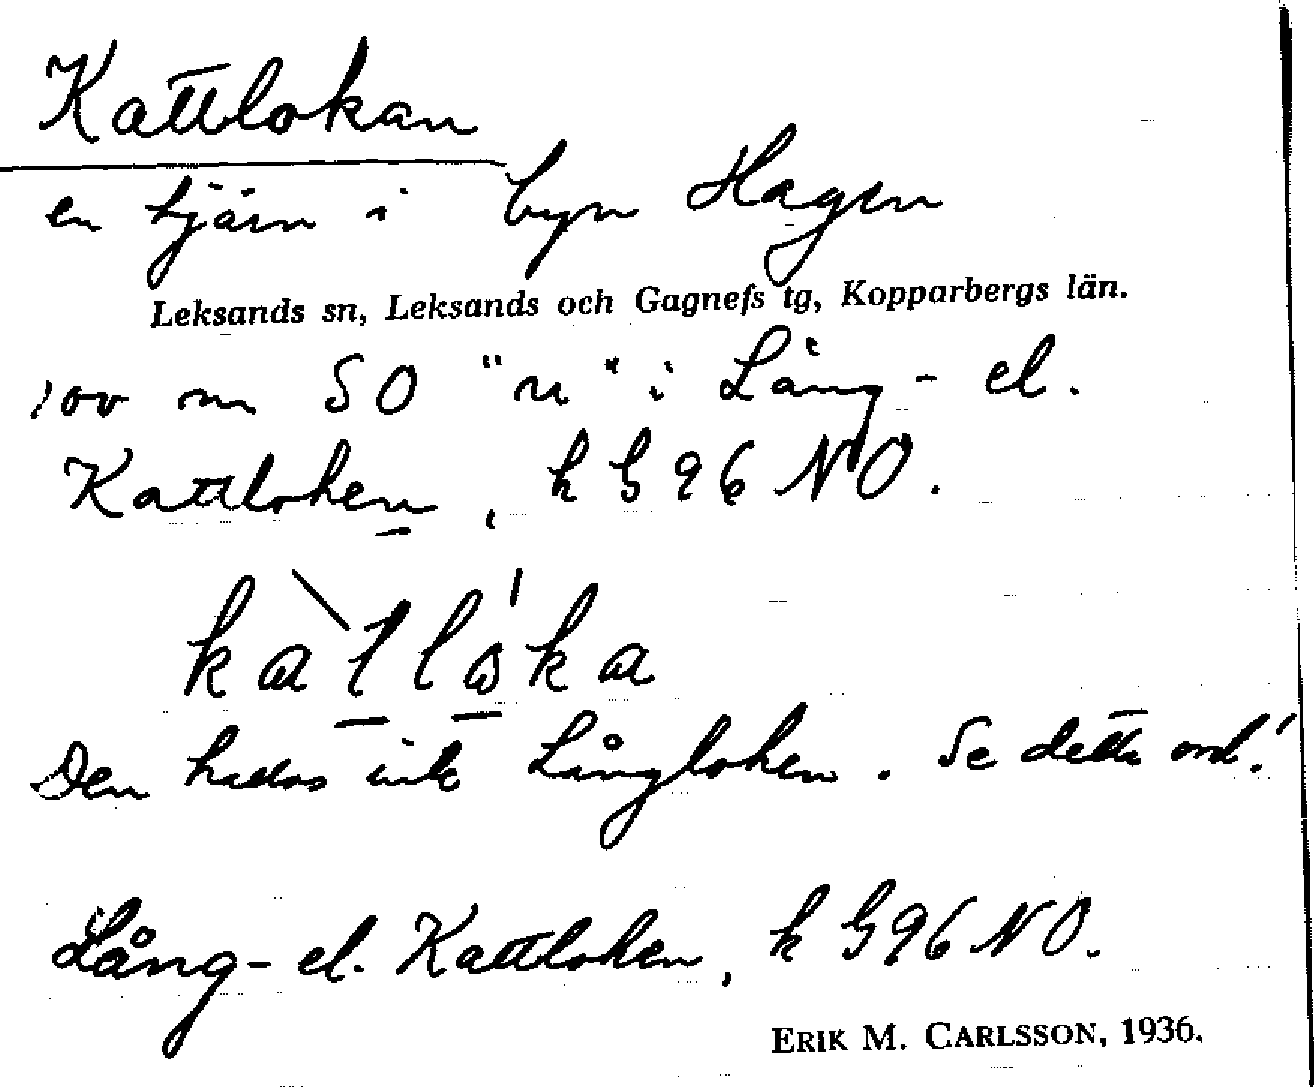 Kattlokan
en tjärn i byn Hagen
Leksands sn, Leksands och Gagnefs tg, Kopparbergs län.
100 m SO "n" i Lång- el.
Kattloken, k G 96 NO.
katloka
Den kallas inte Långloken. Se detta ord!
Lång- el. Kattloken, k G 96 NO.
ERIK M. CARLSSON, 1936.